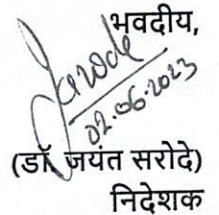 भवदीय,
Jarode
02.06.2023
(डॉ. जयंत सरोदे)
निदेशक